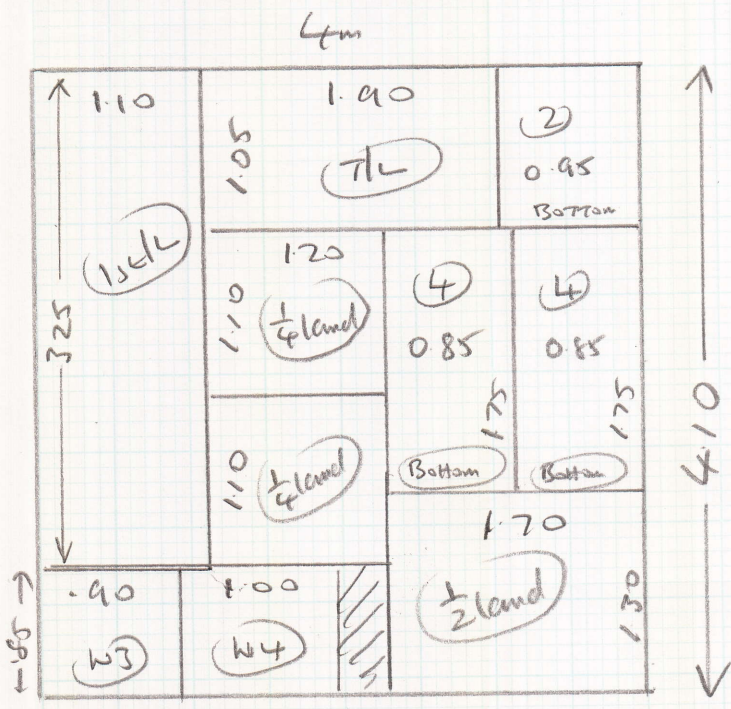 4m
1.10
1.90
1.05
T/L
2
0.95
Bottom
1st/L
3.25
1.20
1.10
1/4 land
4
0.85
1.75
Bottom
4
0.85
1.75
Bottom
4.10
1.10
1/4 land
1.70
1/2 land
1.30
.85
.90
W3
1.00
W4